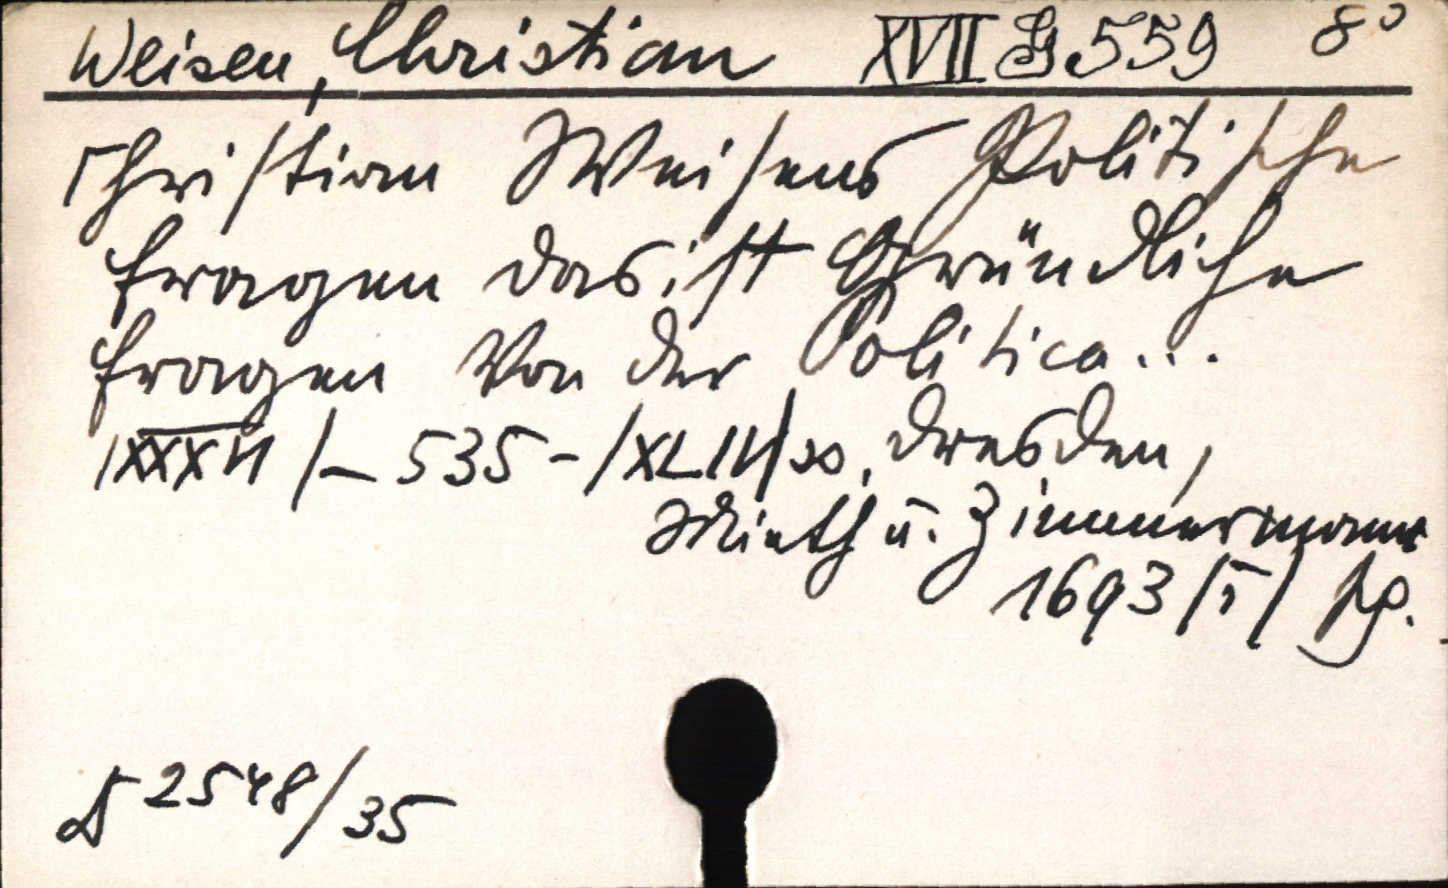 Weisen, Christian XVII G 559 8°
Christian Weisens Politische
Fragen das ist Gründliche
Fragen Von der Politica...
/XXXVI/ – 535 – /XLIV/ SS, Dresden,
Mieth u. Zimmermann
1693 /I/ pg.
2548/35